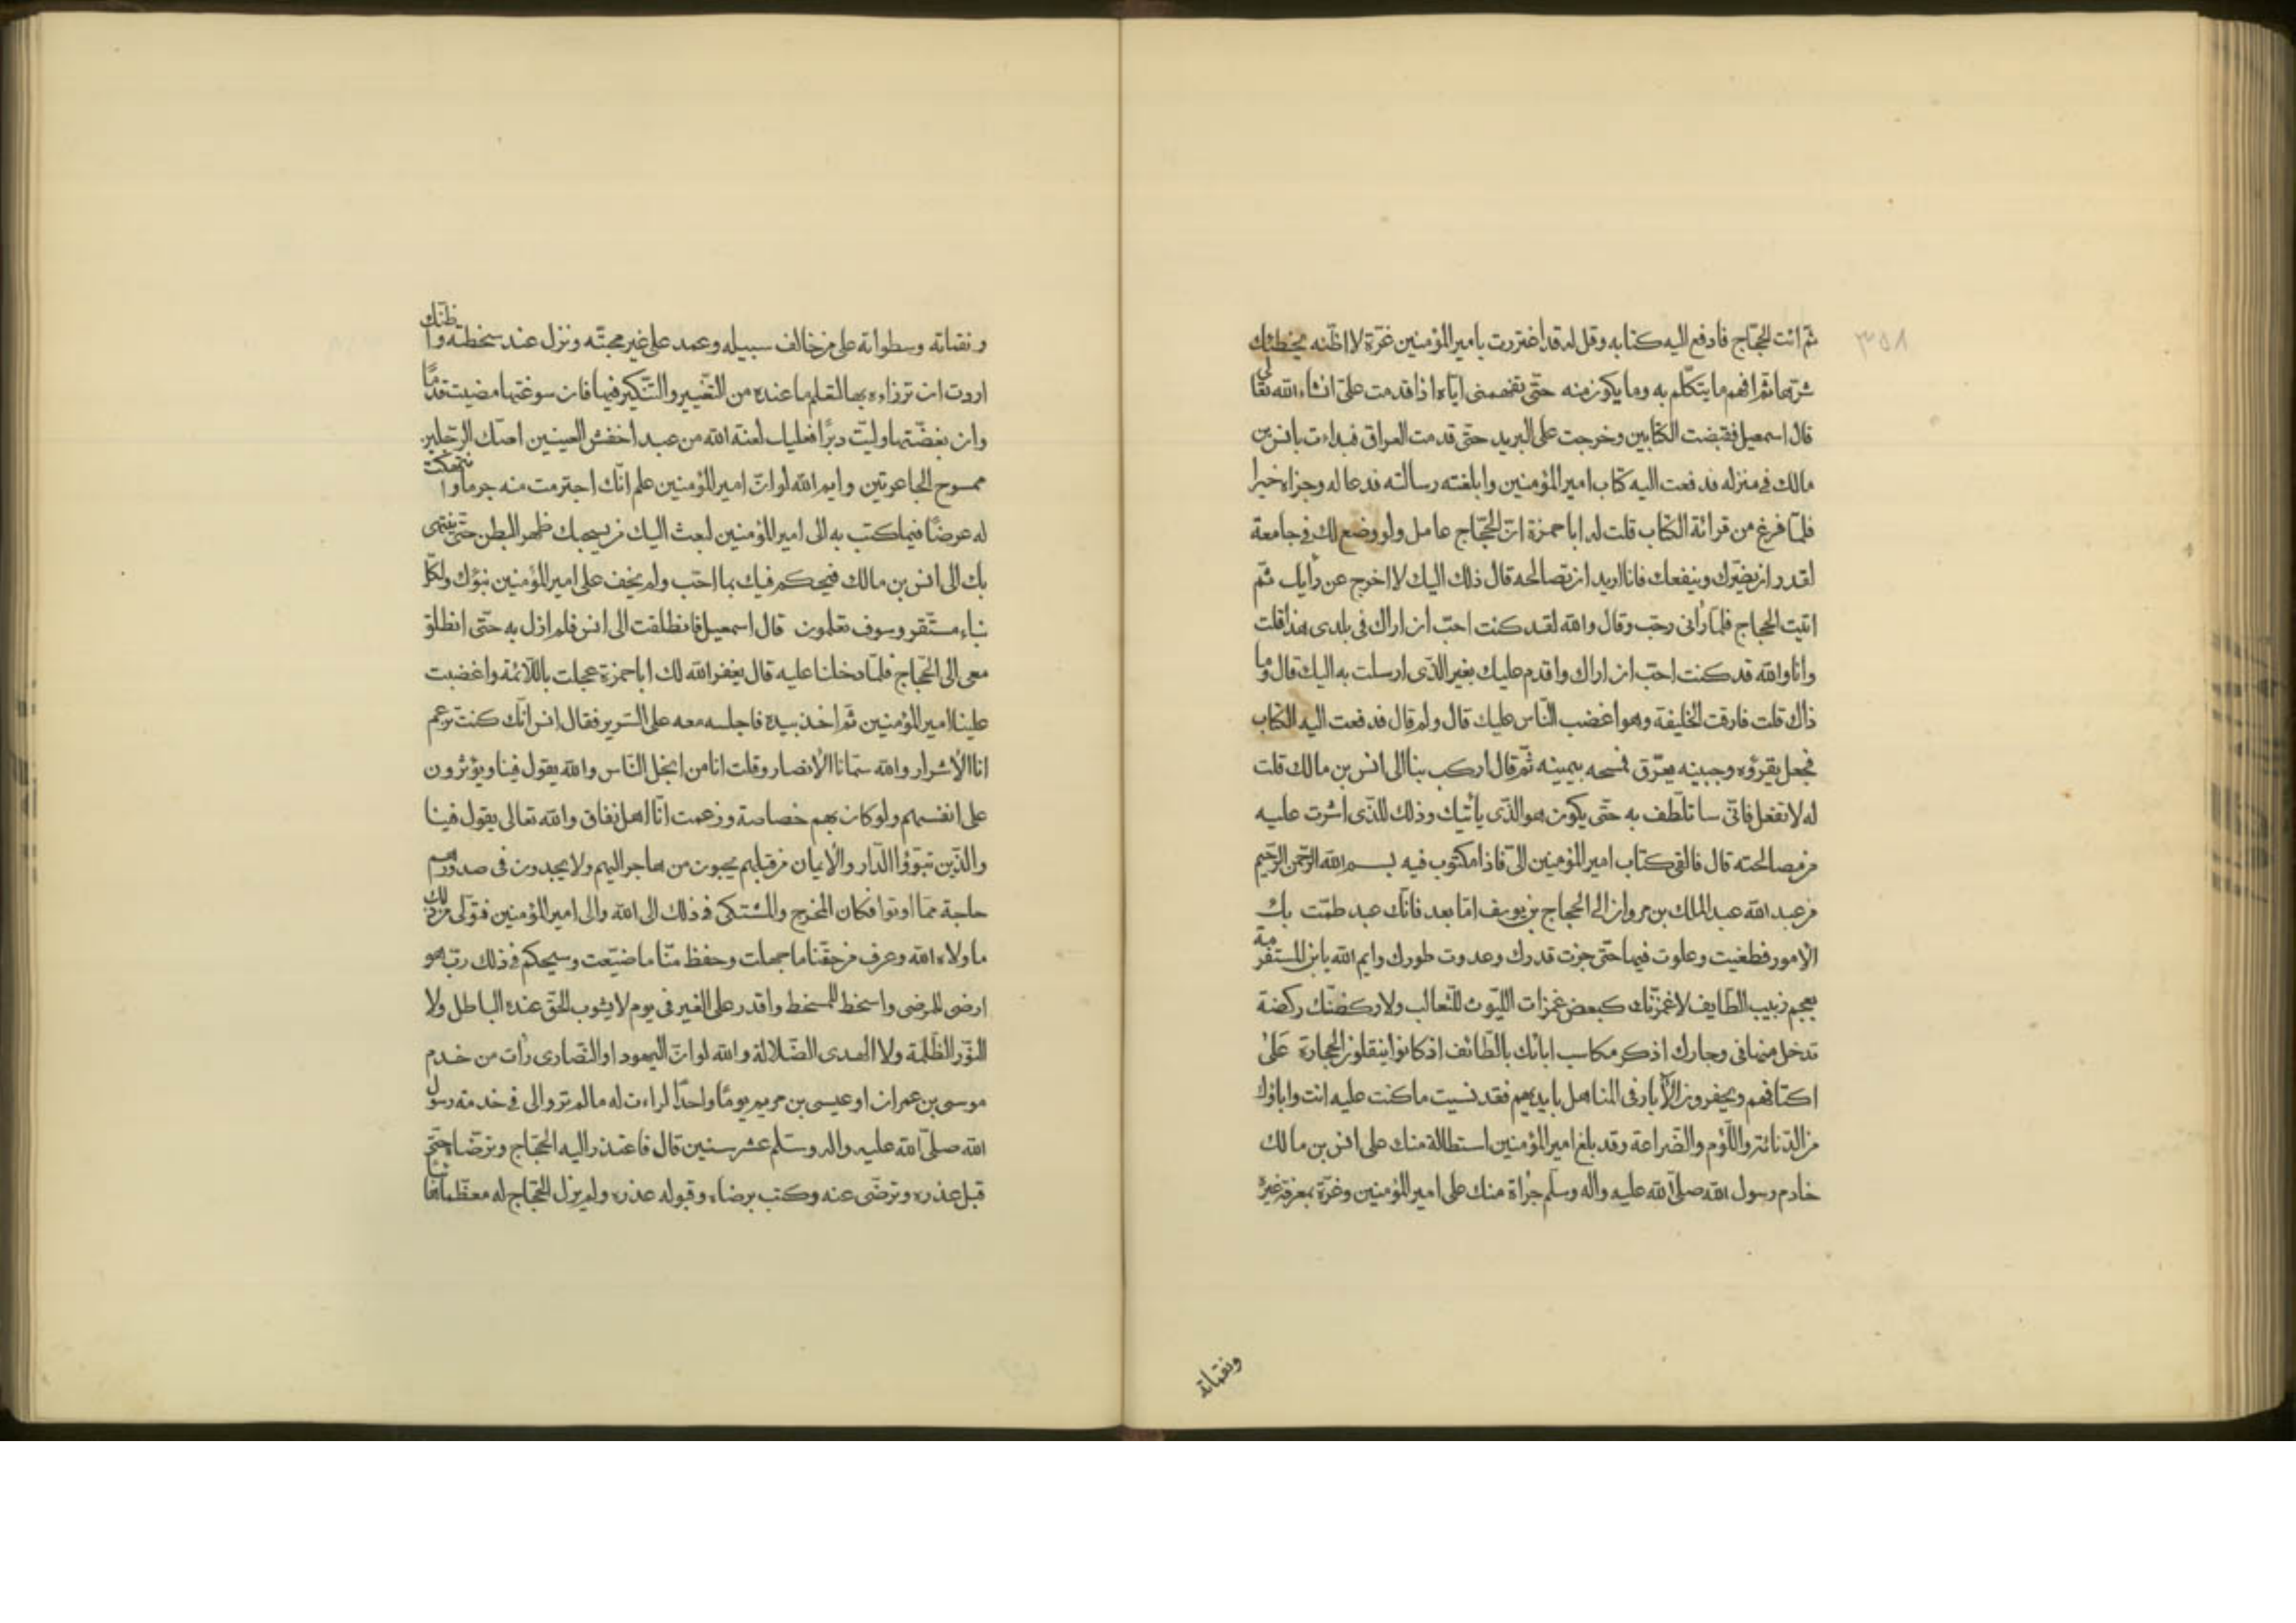 ٣٥٨
ثم ائت الحجّاج فادفع اليه كتابه وقل له قد اغتررت بامير المؤمنين غرّة لا اظنّه يخطئك
شرّها ثم افهم ما يتكلّم به وما يكون منه حتّى تفهمنى ايّاه اذا قدمت علىّ انشاء الله تعالى
قال اسمعيل فقبضت الكتابين وخرجت على البريد حتى قدمت العراق فبداءت بانس بن
مالك فى منزله فدفعت اليه كتاب امير المؤمنين وابلغته رسالته فدعا له وجزاه خيرا
فلمّا فرغ من قرائة الكتاب قلت له ابا حمزة انّ الحجّاج عامل ولو وضع لك فى جامعة
لقدر ان يضرّك وينفعك فانا اريد ان تصالحه قال ذلك اليك لا اخرج عن رأيك ثمّ
اتيت الحجاج فلمّا رأنى رحّب وقال والله لقد كنت احبّ ان اراك فى بلدى هذا قلت
وانا والله قد كنت احبّ ان اراك واقدم عليك بغير الذّى ارسلت به اليك قال وما
ذاك قلت فارقت الخليفة وهو اغضب النّاس عليك قال ولم قال فدفعت اليه الكتاب
فجعل يقرؤه وجبينه يعرّق فمسحه بيمينه ثمّ قال اركب بنا الى انس بن مالك قلت
له لا تفعل فانّى ساتلطّف به حتّى يكون هو الذّى يأتيك وذلك للذّى اشرت عليه
من مصالحته قال فالقى كتاب امير المؤمنين الىّ فاذا مكتوب فيه بسم الله الرّحمن الرّحيم
من عبد الله عبد الملك بن مروان الى الحجاج بن يوسف امّا بعد فانّك عبد طمّت بك
الامور فطغيت وعلوت فيها حتّى جزت قدرك وعدوت طورك وايم الله يا بن المستفرمة
بعجم زبيب الطّايف لاغمزنّك كبعض غمزات اللّيوث للثّعالب ولاركضنّك ركضة
تدخل منها فى وجارك اذكر مكاسب ابائك بالطّائف اذ كانوا ينقلون الحجارة على
اكتافهم ويحفرون الآبار فى المناهل بايديهم فقد نسيت ما كنت عليه انت واباؤك
من الدّنائة واللّؤم والضّراعة وقد بلغ امير المؤمنين استطالة منك على انس بن مالك
خادم رسول الله صلّى الله عليه واله وسلّم جرأة منك على امير المؤمنين وغرّة بمعرفة غيره
ونقماته
ونقماته وسطواته على من خالف سبيله وعمد على غير محبّته ونزل عند سخطته واظنّك
اردت ان ترزاءه بها لتعلم ما عنده من التّغيير والتّنكير فيها فان سوغتها مضيت قدمًا
وان بغضّتها وليّت دبرًا فعليك لعنة الله من عبد اخفش العينين اصكّ الرّجلين
ممسوح الجاعرتين وايم الله لو انّ امير المؤمنين علم انّك اجترمت منه جرما وانتهكت
له عرضًا فيما كتب به الى امير المؤمنين لبعث اليك من يسحبك ظهر البطن حتّى ينتهى
بك الى انس بن مالك فيحكم فيك بما احبّ ولم يخف على امير المؤمنين نبؤك ولكلّ
نباء مستّقر وسوف تعلمون قال اسمعيل فانطلقت الى انس فلم ازل به حتّى انطلق
معى الى الحجّاج فلمّا دخلنا عليه قال يغفر الله لك ابا حمزة عجلت باللّائمة واغضبت
علينا امير المؤمنين ثم اخذ بيده فاجلسه معه على السّرير فقال انس انّك كنت تزعم
انا الأشرار والله سمّانا الأنصار وقلت انا من ابخل النّاس والله يقول فينا ويؤثرون
على انفسهم ولو كان بهم خصاصة وزعمت انّا اهل نفاق والله تعالى يقول فينا
والذّين تبوّؤا الدّار والأيمان من قبلهم يحبون من هاجر اليهم ولا يجدون فى صدورهم
حاجة ممّا اوتوا فكان المخرج والمشتكى فى ذلك الى الله والى امير المؤمنين فتولّى من ذلك
ما ولاه الله وعرف من حقّنا ما جهلت وحفظ منّا ما ضيّعت وسيحكم فى ذلك ربّ هو
ارضى للمرضى واسخط للمسخط واقدر على الغير فى يوم لا يشوب الحقّ عنده الباطل ولا
النّور الظّلمة ولا الهدى الضّلالة والله لو انّ اليهود او النّصارى رأت من خدم
موسى بن عمران او عيسى بن مريم يومًا واحدًا لراءت له ما لم تروا لى فى خدمة رسول
الله صلّى الله عليه واله وسلّم عشر سنين قال فاعتذر اليه الحجّاج وترضّاه حتّى
قبل عذره وترضّى عنه وكتب برضاء وقبوله عذره ولم يزل الحجّاج له معظّما